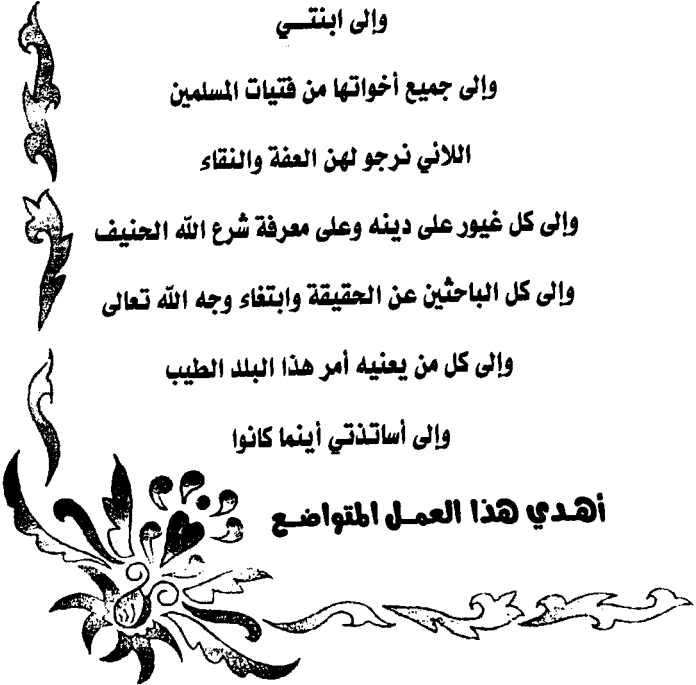 وإلى ابنتـــي
وإلى جميع أخواتها من فتيات المسلمين
اللاتي نرجو لهن العفة والنقاء
وإلى كل غيور على دينه وعلى معرفة شرع الله الحنيف
وإلى كل الباحثين عن الحقيقة وابتغاء وجه الله تعالى
وإلى كل من يعنيه أمر هذا البلد الطيب
وإلى أساتذتي أينما كانوا
أهـدي هذا العمـل المتواضـع